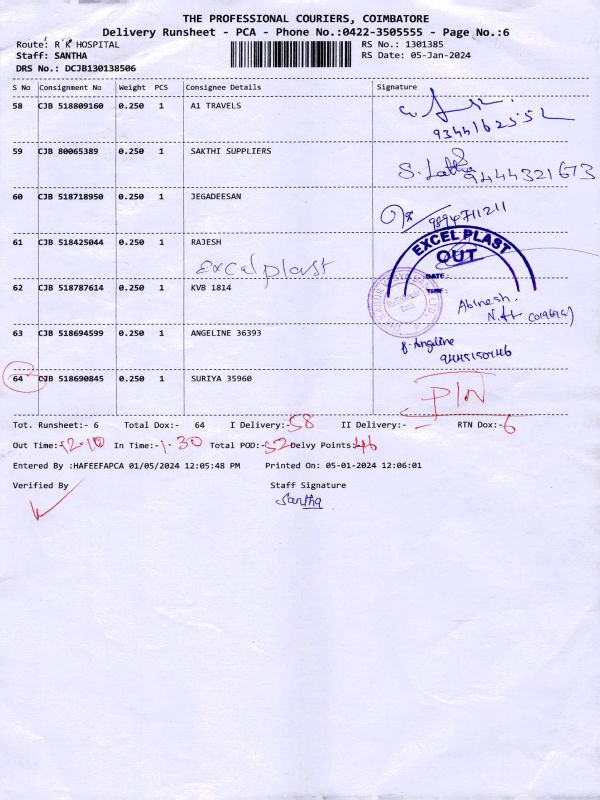 THE PROFESSIONAL COURIERS, COIMBATORE
Delivery Runsheet - PCA - Phone No.:0422-3505555 - Page No.:6
Route: R K HOSPITAL RS No.: 1301385
Staff: SANTHA RS Date: 05-Jan-2024
DRS No.: DCJB130138506
S No Consignment No Weight PCS Consignee Details Signature
58 CJB 518809160 0.250 1 A1 TRAVELS
9344162552
59 CJB 80065389 0.250 1 SAKTHI SUPPLIERS
S. Latha 9444321673
60 CJB 518718950 0.250 1 JEGADEESAN
9894711211
61 CJB 518425044 0.250 1 RAJESH
Excel plast
EXCEL PLAST
OUT
DATE :
TIME :
62 CJB 518787614 0.250 1 KVB 1814
Abinesh.
63 CJB 518694599 0.250 1 ANGELINE 36393
Angeline
64 CJB 518690845 0.250 1 SURIYA 35960
PIN
Tot. Runsheet:- 6 Total Dox:- 64 I Delivery:- 58 II Delivery:- - RTN Dox:- 6
Out Time:- 12-10 In Time:- 1-30 Total POD:- 52 Delvy Points:- 46
Entered By :HAFEEFAPCA 01/05/2024 12:05:48 PM Printed On: 05-01-2024 12:06:01
Verified By Staff Signature
Santha